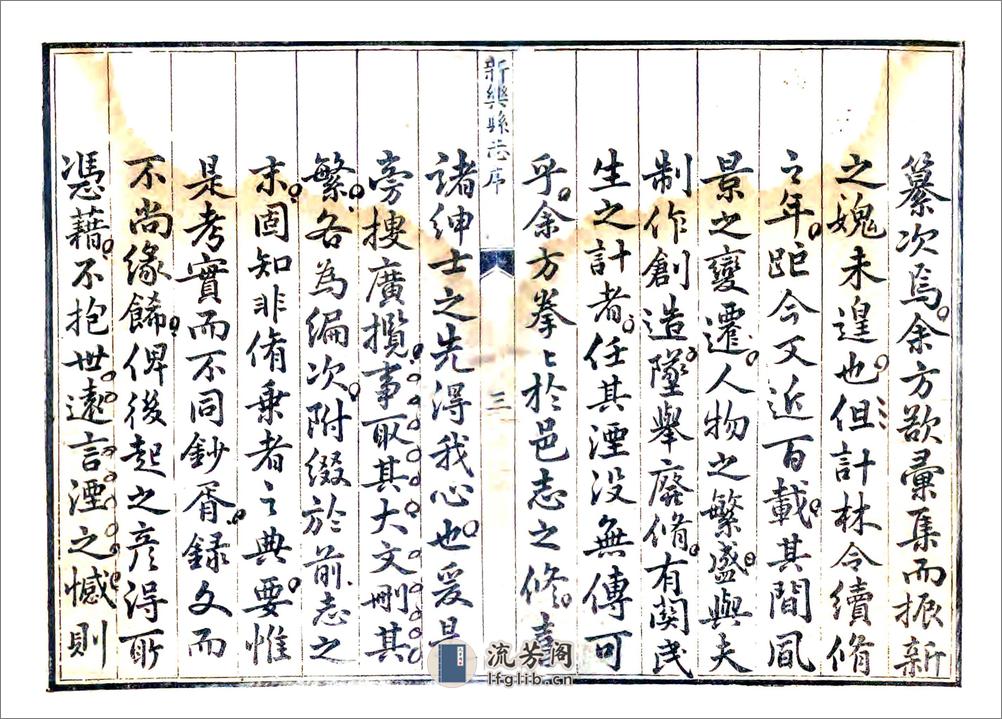 纂次焉余方欲彙集而振新
之媿未遑也但計林令續脩
之年距今又近百載其間風
景之變遷人物之繁盛與夫
制作創造墜舉廢脩有関民
生之計者任其湮没無傳可
乎余方拳〻於邑志之修
新樂縣志 序
三
諸紳士之先得我心也爰
旁搜廣攬事取其大文刪其
繁各為編次附綴於前志之
末固知非脩乗者之典要惟
是考實而不同鈔胥録文而
不尚緣餙俾後起之彦得所
憑藉不抱世遠言湮之憾則
流芳阁
lfglib.cn